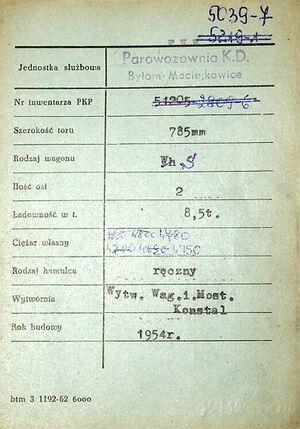 5039-7
PKP
5219-1
Jednostka służbowa
Parowozownia K.D.
Bytom-Maciejkowice
Nr inwentarza PKP
51205-2809-6
Szerokość toru
785mm
Rodzaj wagonu
Wh S
Ilość osi
2
Ładowność w t.
8,5t.
Ciężar własny
4750
Rodzaj hamulca
ręczny
Wytwórnia
Wytw. Wag.i.Most.
Konstal
Rok budowy
1954r.
btm 3 1192-62 6000